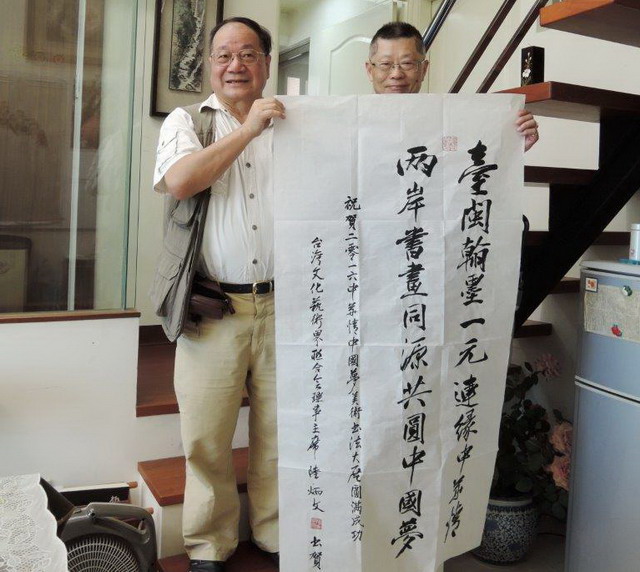 臺閩翰墨一元連緣中華情
兩岸書畫同源共圓中國夢
祝賀二零一六中華情中國夢美術书法大展圓滿成功
台湾文化藝術界联合会理事主席 陸炳文 书賀